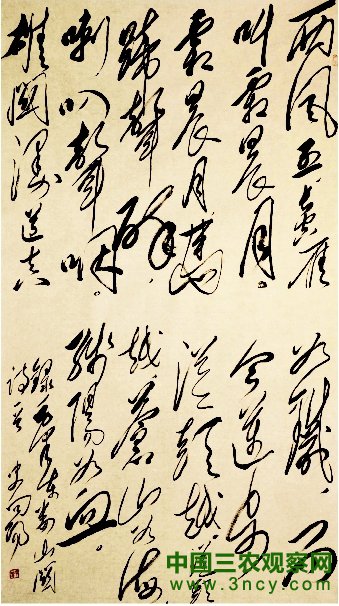 西风烈。长空雁
叫霜晨月。
霜晨月。馬
蹄聲碎。
喇叭聲咽。
雄關漫道真
如鐵。而
今邁步
從頭越。從頭
越。蒼山如海
殘陽如血。
錄毛澤東婁山關
中国三农观察网
www.3ncy.com